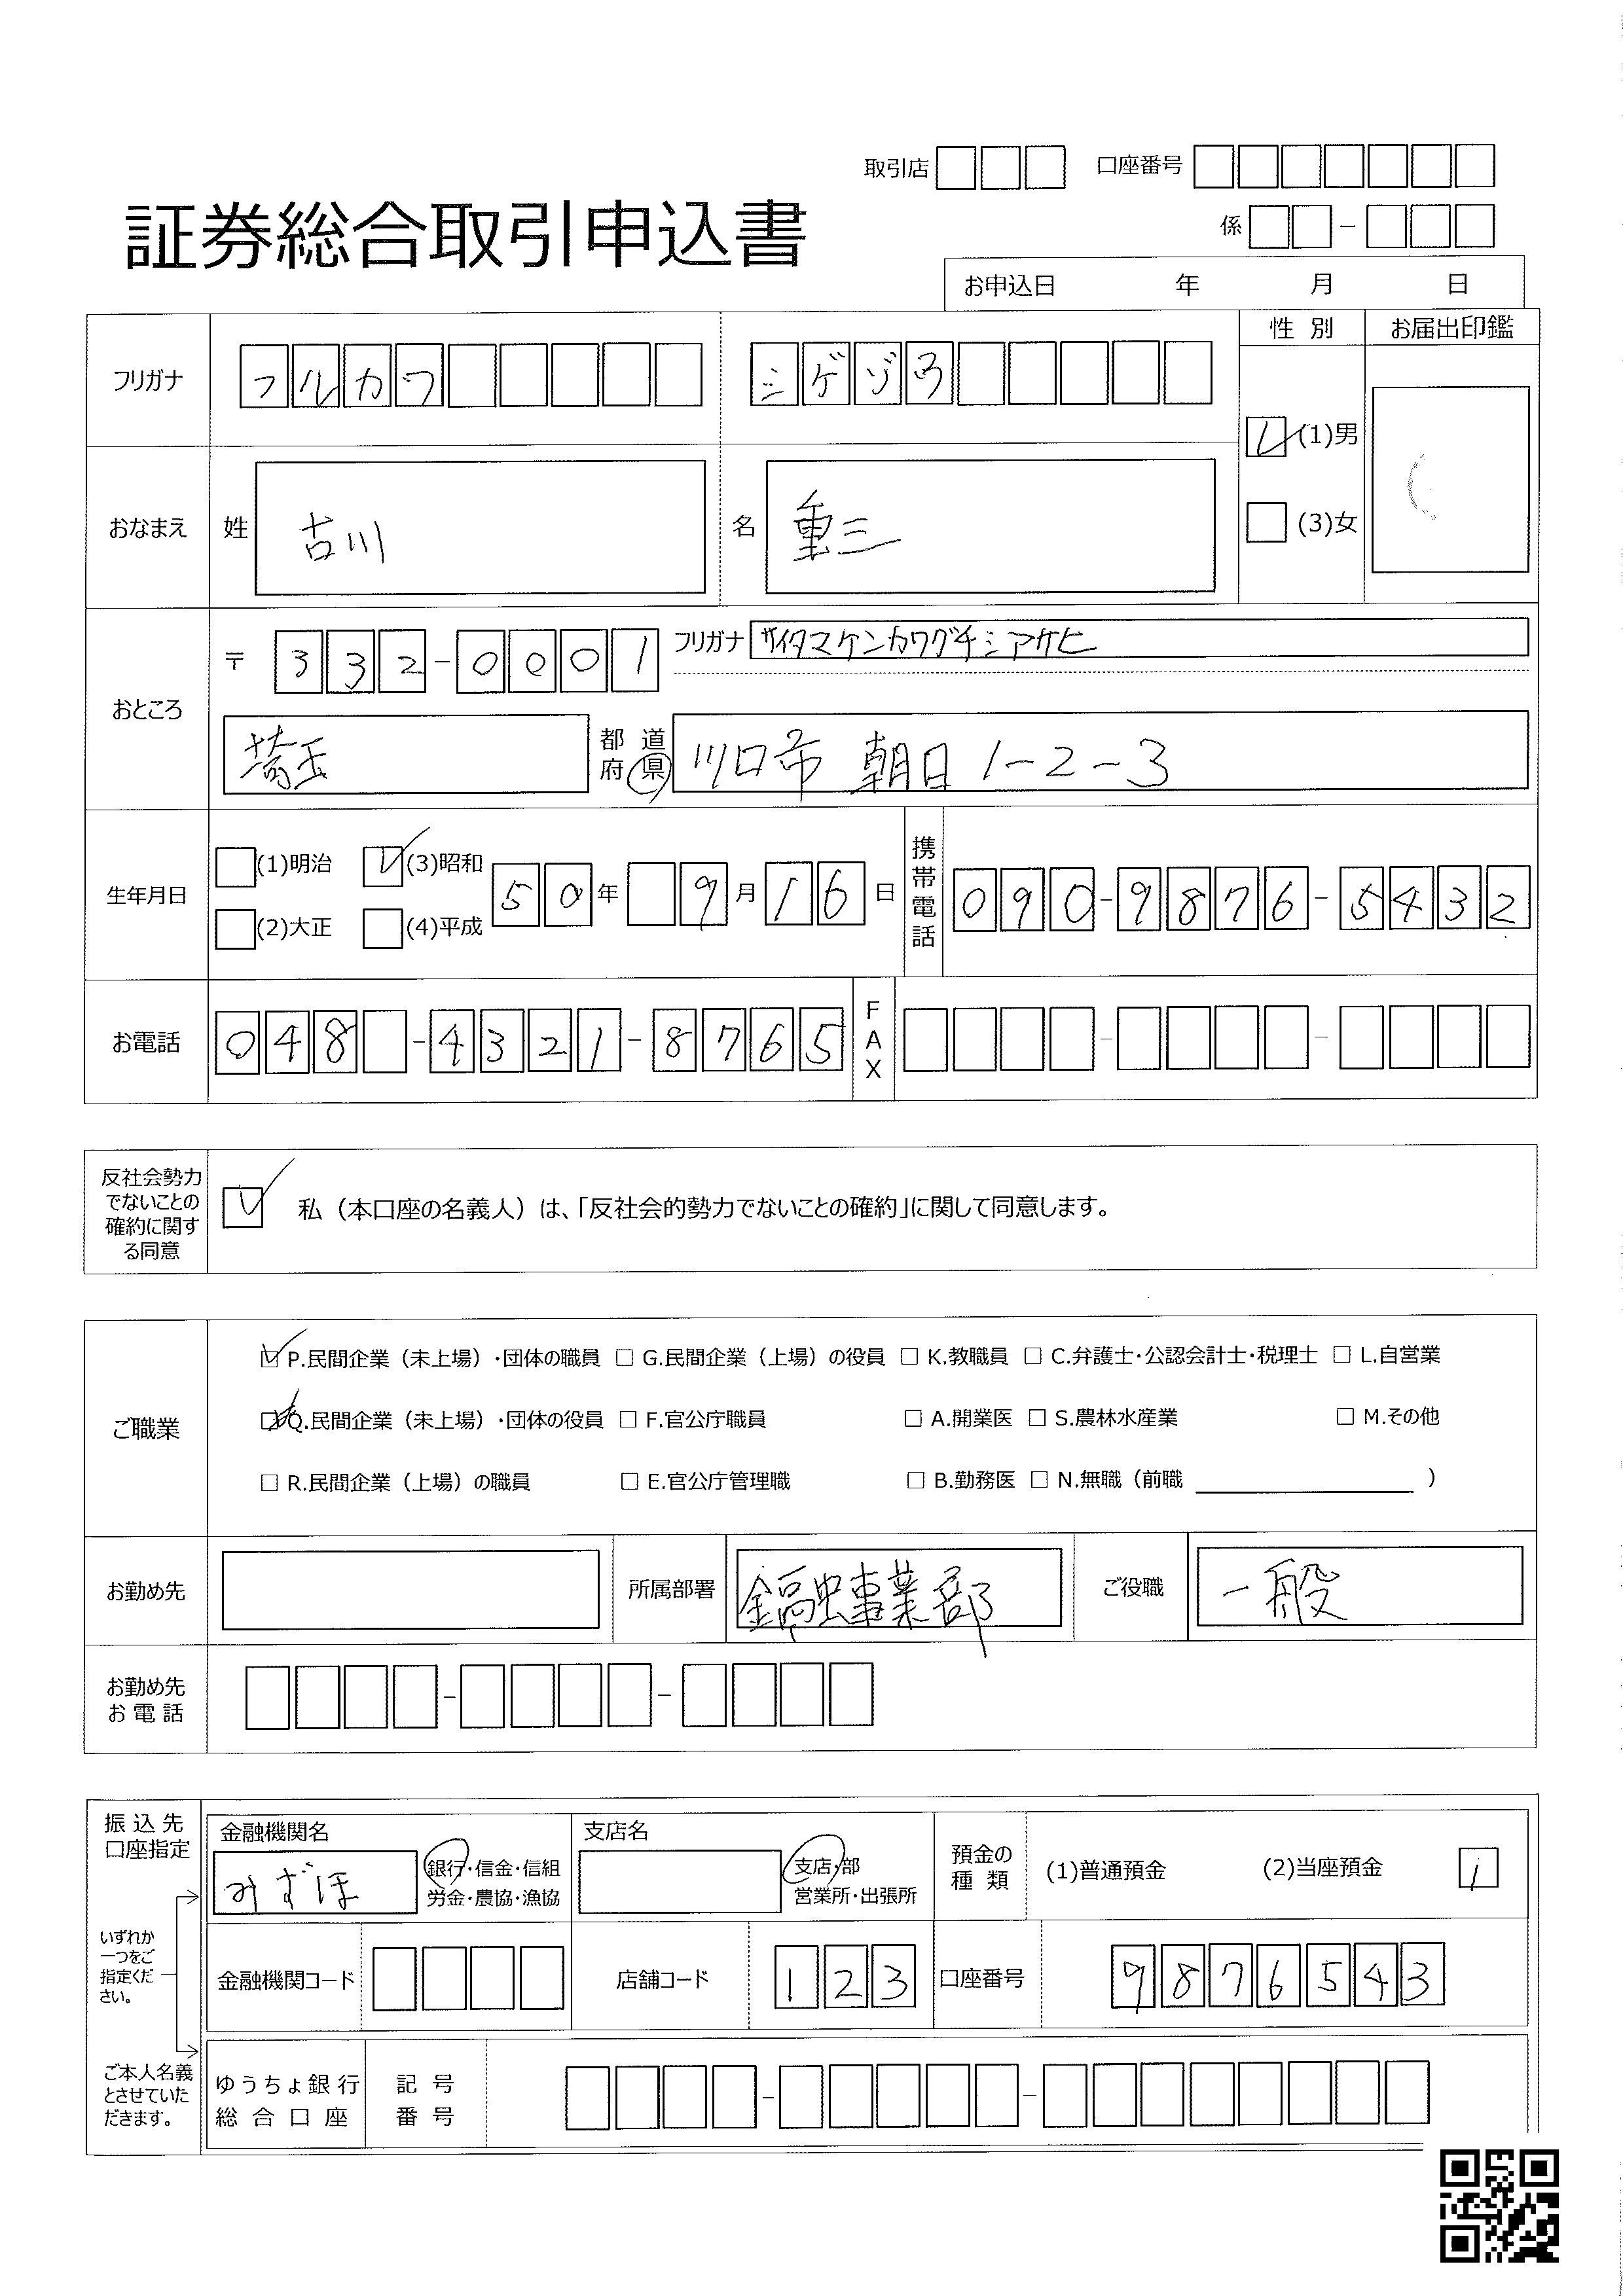 取引店 口座番号
証券総合取引申込書
係 －
お申込日 年 月 日
フリガナ フルカワ シゲゾウ 性 別 お届出印鑑
(1)男
おなまえ 姓 古川 名 重三
(3)女
おところ 〒 332-0001 フリガナ サイタマケンカワグチシアサヒ
埼玉 都 道 府 県 川口市 朝日 1-2-3
生年月日 (1)明治 (3)昭和 50 年 9 月 16 日 携帯電話 090-9876-5432
(2)大正 (4)平成
お電話 048-4321-8765 FAX － －
反社会勢力
でないことの
確約に関す
る同意
私（本口座の名義人）は、「反社会的勢力でないことの確約」に関して同意します。
ご職業
P.民間企業（未上場）・団体の職員 G.民間企業（上場）の役員 K.教職員 C.弁護士・公認会計士・税理士 L.自営業
Q.民間企業（未上場）・団体の役員 F.官公庁職員 A.開業医 S.農林水産業 M.その他
R.民間企業（上場）の職員 E.官公庁管理職 B.勤務医 N.無職（前職 ）
お勤め先 所属部署 事業部 ご役職 一般
お勤め先
お 電 話 － －
振 込 先
口座指定
金融機関名 支店名
みずほ 銀行・信金・信組 支店・部 預金の種 類 (1)普通預金 (2)当座預金 1
労金・農協・漁協 営業所・出張所
いずれか
一つをご
指定くだ
さい。
金融機関コード 店舗コード 123 口座番号 9876543
ご本人名義
とさせていた
だきます。
ゆうちょ銀行 記 号 － －
総 合 口 座 番 号